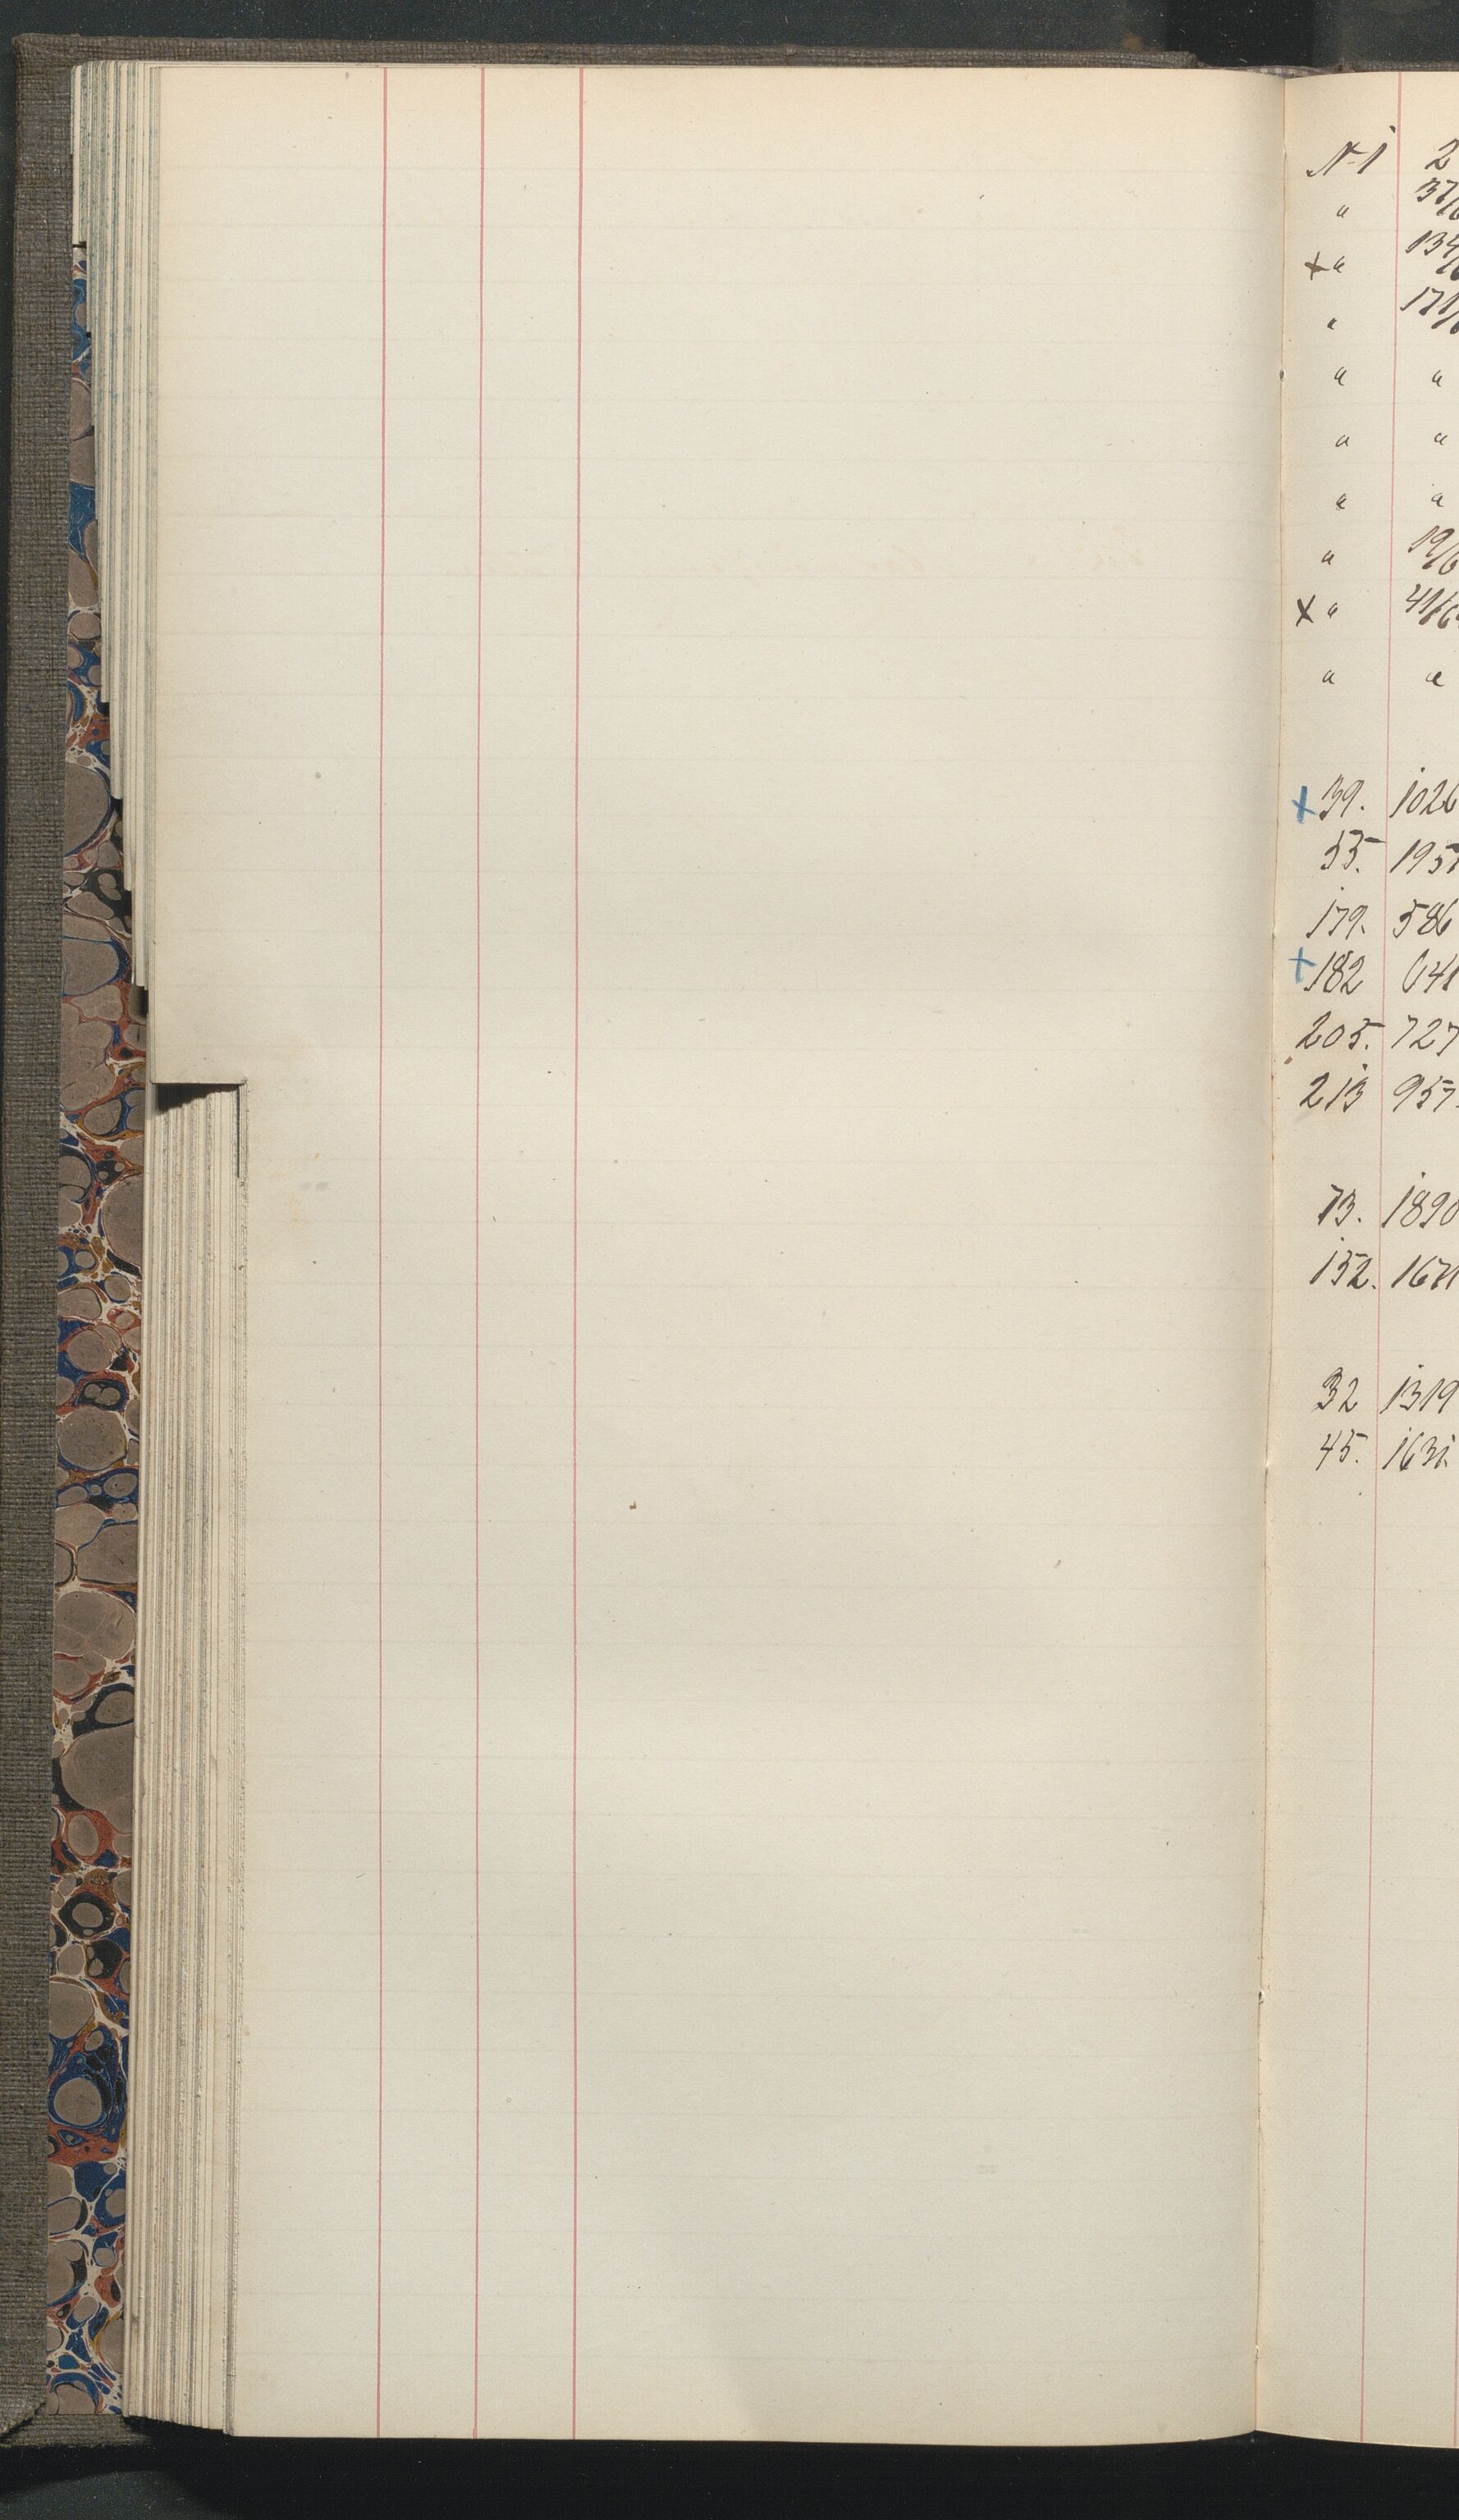 N 1 2
" 37/6
+ " 134/6
" 171/6
" "
" "
" "
" 19/6
x " 41/6
" "
+ 39. 1026
55. 195
179. 586
+ 182 641
205. 727
213 957.
73. 1890
152. 1671
32 1319
45. 1631.